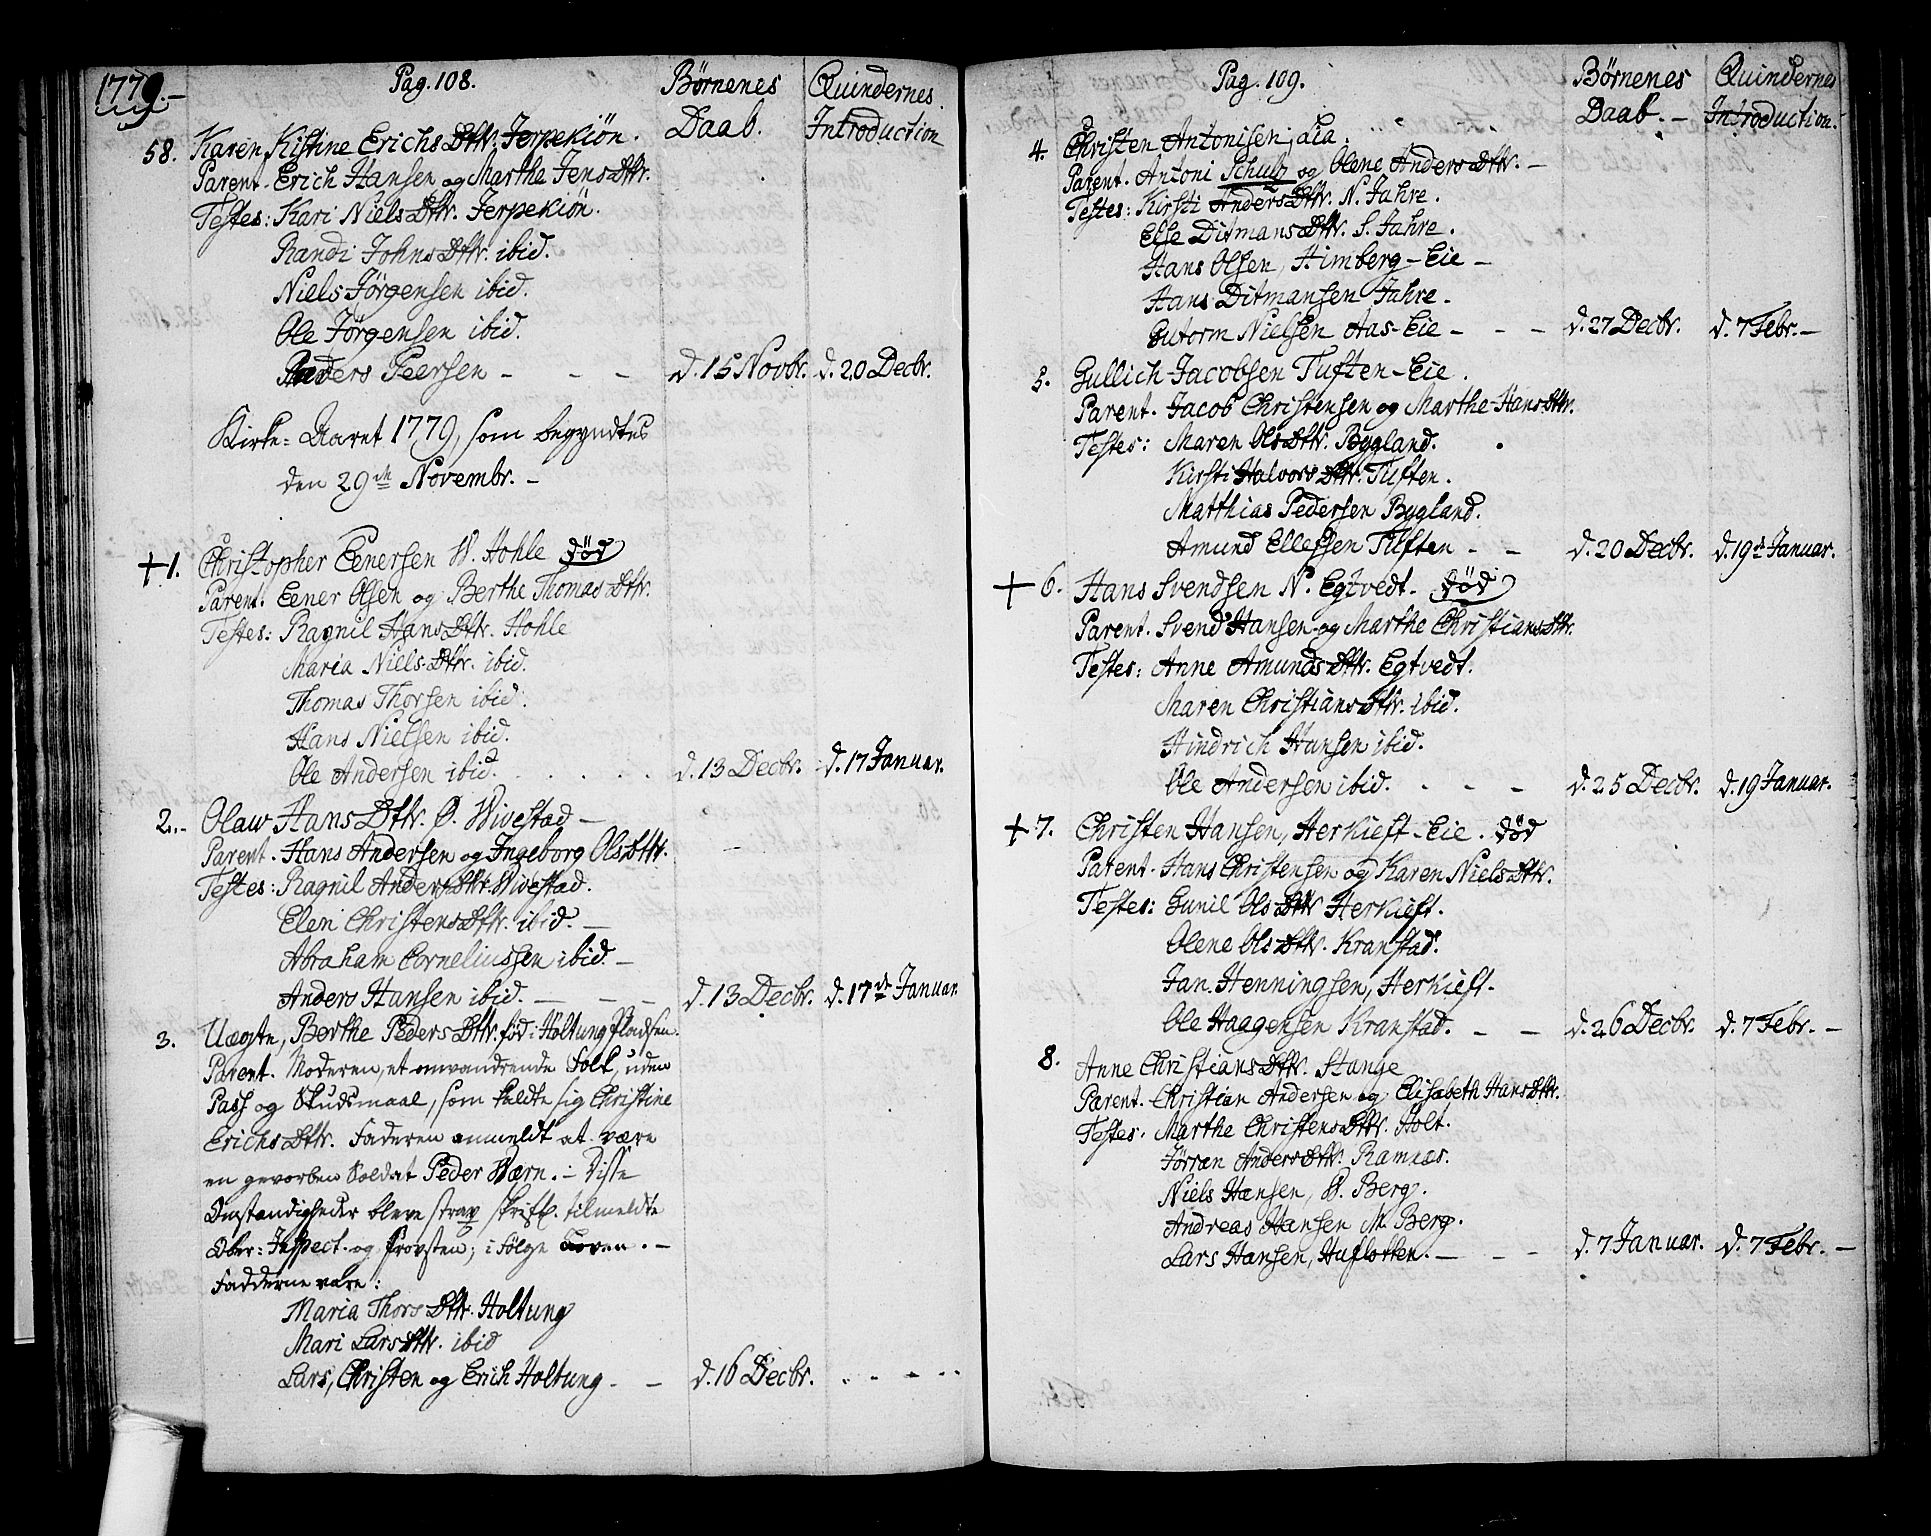 1779.-
Pag. 108.
Børnenes Daab.
Quindernes Introduction
58. Karen Kistine Erichs Dttr. Jerpekiøn.
Parent. Erich Hansen og Marthe Jens Dttr.
Testes: Kari Niels Dttr. Jerpekiøn.
Randi Johns Dttr. ibid.
Niels Jörgensen ibid.
Ole Jörgensen ibid.
Anders Peersen - - - d. 15 Novbr. d. 20 Decbr.
Kirke-Aaret 1779, som begyndtes
den 29de Novembr. -
+ 1. Christopher Eenersen W. Hohle død
Parent. Eener Olsen og Berthe Thomas Dttr.
Testes: Ragnil Hans Dttr. Hohle
Maria Niels Dttr. ibid.
Thomas Thorsen ibid.
Hans Nielsen ibid.
Ole Andersen ibid. . . . . . d. 13 Decbr. d. 17 Januar.
2. Olaw Hans Dttr. Ø. Wivestad -
Parent. Hans Andersen og Ingeborg Ols Dttr.
Testes: Ragnil Anders Dttr. Wivestad.
Eleni Christens Dttr. ibid. -
Abraham Corneliussen ibid. -
Anders Hansen ibid. - - - d. 13 Decbr. d. 17de Januar.
3. Uægte, Berthe Peders Dttr. fød i Holtung Pladsen.
Parent. Moderen, et omvandrende Folk, uden
Pass og Skudsmaal, som kaldte sig Christine
Erichs Dttr. Faderen anmeldt at være
en gevorben Soldat Peder Wærn. - Disse
Omstændigheder bleve strax skriftl. tilmeldte
Ober-Inspect. og Provsten; i følge Loven. -
Fadderne vare:
Maria Thors Dttr. Holtung
Mari Lars Dttr. ibid
Lars, Christen og Erich Holtung - - d. 16 Decbr. . - - . .
Pag. 109.
Børnenes Daab. -
Quindernes Introduction.
4. Christen Antonisen, Lia.
Parent. Antoni Schulz og Olene Anders Dttr. -
Testes: Kirsti Anders Dttr. N. Jahre.
Else Ditmans Dttr. S. Jahre.
Hans Olsen, Himberg-Eie -
Hans Ditmansen Jahre.
Gutorm Nielsen Aas-Eie - - - d. 27 Decbr. d. 7 Febr. -
5. Gullich Jacobsen Tuften-Eie.
Parent. Jacob Christensen og Marthe Hans Dttr.
Testes: Maren Ols Dttr. Bygland.
Kirsti Halvors Dttr. Tuften.
Matthias Pedersen Bygland.
Amund Ellefsen Tuften - - d. 20 Decbr. d. 19de Januar.
+ 6. Hans Svendsen N. Egtvedt. død
Parent. Svend Hansen og Marthe Christians Dttr.
Testes: Anne Amunds Dttr. Egtvedt.
Maren Christians Dttr. ibid.
Hindrich Hansen ibid.
Ole Andersen ibid. . - - d. 25 Decbr. d. 19 Januar.
+ 7. Christen Hansen, Herkieft-Eie. død
Parent. Hans Christensen og Karen Niels Dttr.
Testes: Gunil Ols Dttr Herkieft.
Olene Ols Dttr. Kranstad.
Jan Henningsen, Herkieft.
Ole Haagensen Kranstad. - - d. 26 Decbr. d. 7 Febr. -
8. Anne Christians Dttr. Stange
Parent. Christian Andersen og Elisabeth Hans Dttr.
Testes. Marthe Christens Dttr. Holt.
Jörran Anders Dttr. Ramnæs.
Niels Hansen, W. Berg.
Andreas Hansen M. Berg.
Lars Hansen, Huflotten. - - - d. 7 Januar. d. 7 Febr. -